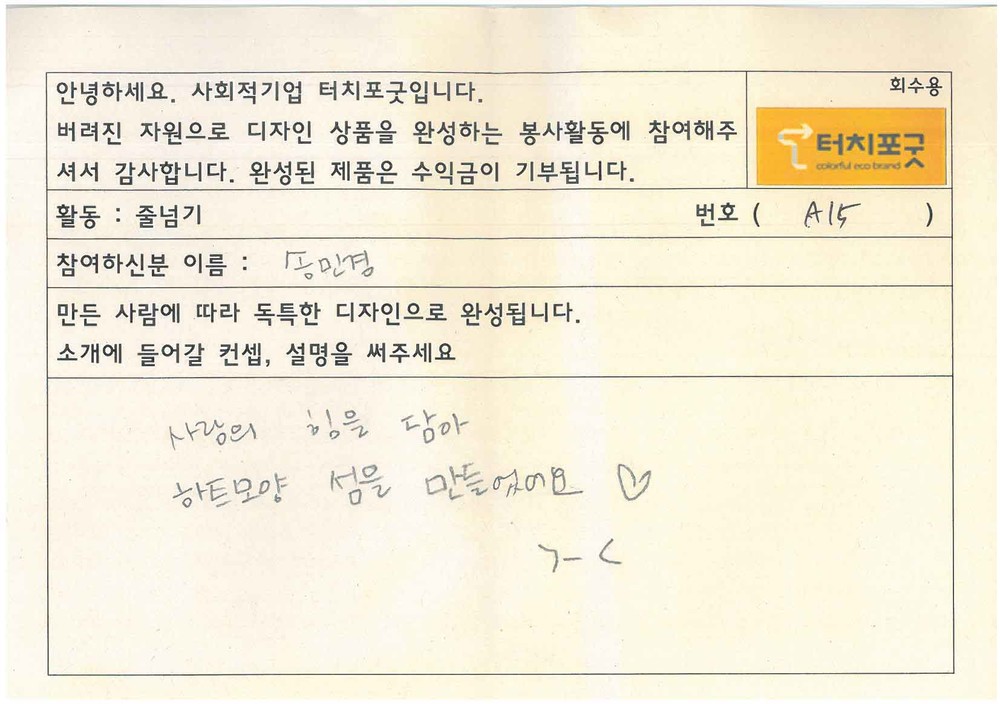 안녕하세요. 사회적기업 터치포굿입니다.
버려진 자원으로 디자인 상품을 완성하는 봉사활동에 참여해주
셔서 감사합니다. 완성된 제품은 수익금이 기부됩니다.
회수용
터치포굿
colorful eco brand
활동 : 줄넘기
번호 ( A15 )
참여하신분 이름 : 송민경
만든 사람에 따라 독특한 디자인으로 완성됩니다.
소개에 들어갈 컨셉, 설명을 써주세요
사랑의 힘을 담아
하트모양 섬을 만들었어요 ♡
>-<